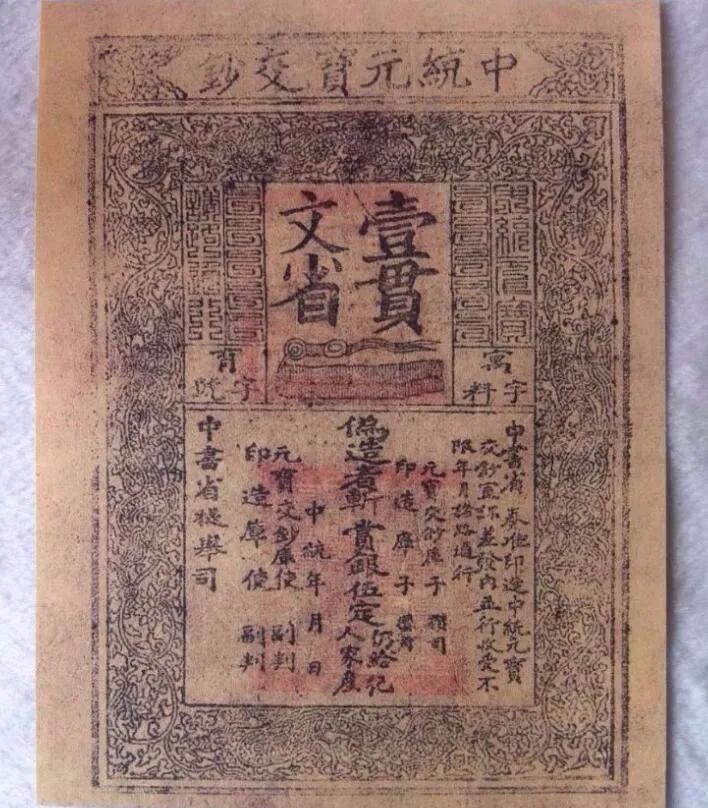 中統元寶交鈔
壹貫
文省
字料
字號
中書省奏准印造中統元寶
交鈔宣課差發內並行收受不
限年月諸路通行
元寶交鈔庫子
印造庫子
偽造者斬賞銀伍定
仍給犯
人家產
中統年月日
元寶交鈔庫使副判
印造庫使副判
中書省提舉司